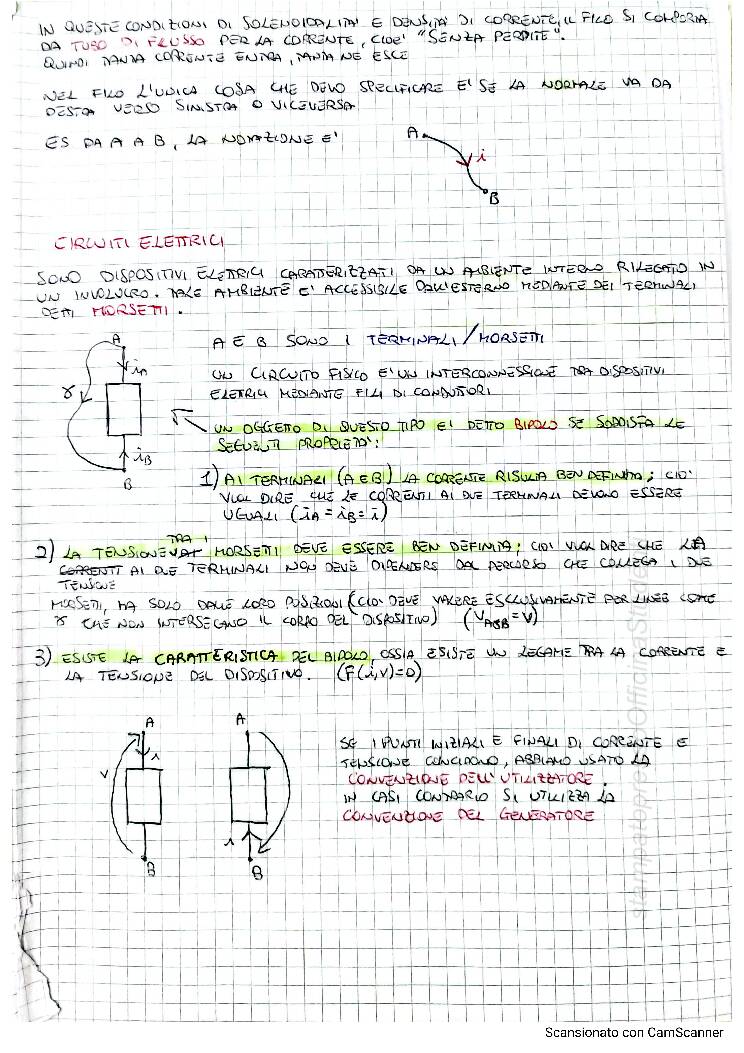 IN QUESTE CONDIZIONI DI SOLENOIDALITA' E DENSITA' DI CORRENTE, IL FILO SI COMPORTA
DA TUBO DI FLUSSO PER LA CORRENTE, CIOE' "SENZA PERDITE".
QUINDI TANTA CORRENTE ENTRA, TANTA NE ESCE
NEL FILO L'UNICA COSA CHE DEVO SPECIFICARE E' SE LA NORMALE VA DA
DESTA VERSO SINISTRA O VICEVERSA
ES DA A A B, LA NOTAZIONE E'
A
i
B
CIRCUITI ELETTRICI
SONO DISPOSITIVI ELETTRICI CARATTERIZZATI DA UN AMBIENTE INTERNO RILEGATO IN
UN INVOLUCRO. TALE AMBIENTE E' ACCESSIBILE DALL'ESTERNO MEDIANTE DEI TERMINALI
DETTI MORSETTI.
A
iA
γ
iB
B
A E B SONO I TERMINALI/MORSETTI
UN CIRCUITO FISICO E' UN INTERCONNESSIONE TRA DISPOSITIVI
ELETRICI MEDIANTE FILI DI CONDUTTORI
UN OGGETTO DI QUESTO TIPO E' DETTO BIPOLO SE SODDISFA LE
SEGUENTI PROPRIETA':
1) AI TERMINALI (A E B) LA CORRENTE RISULTA BEN DEFINITA; CIO'
VUOL DIRE CHE LE CORRENTI AI DUE TERMINALI DEVONO ESSERE
UGUALI (iA = iB = i)
2) LA TENSIONE TRA I MORSETTI DEVE ESSERE BEN DEFINITA; CIO' VUOL DIRE CHE LA
CORRENTI AI DUE TERMINALI NON DEVE DIPENDERE DAL PERCORSO CHE COLLEGA I DUE
TENSIONE
MORSETTI, MA SOLO DALLE LORO POSIZIONI (CIO' DEVE VALERE ESCLUSIVAMENTE PER LINEE COME
γ CHE NON INTERSECANO IL CORPO DEL DISPOSITIVO) (VAγB = V)
3) ESISTE LA CARATTERISTICA DEL BIPOLO, OSSIA ESISTE UN LEGAME TRA LA CORRENTE E
LA TENSIONE DEL DISPOSITIVO. (F(i,V)=0)
A
i
V
B
A
i
B
SE I PUNTI INIZIALI E FINALI DI CORRENTE E
TENSIONE COINCIDONO, ABBIAMO USATO LA
CONVENZIONE DELL'UTILIZZATORE.
IN CASI CONTRARIO SI UTILIZZA LA
CONVENZIONE DEL GENERATORE
Scansionato con CamScanner